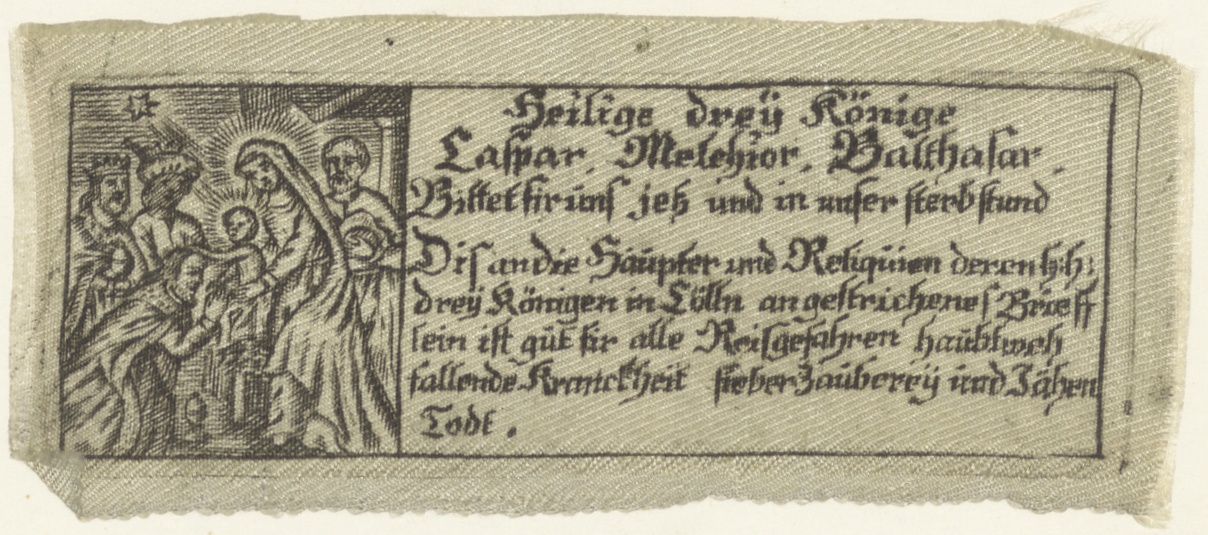 Heilige dreÿ Könige
Caſpar. Melchior. Balthaſar.
Bittet fir unſ jetz und in unſer ſterbſtund
Diſ an die Haüpter und Reliquien deren h:h:
dreÿ Königen in Cölln angeſtricheneſ Brieff
lein iſt güt fir alle Reiſgefahren haübtweh
fallende Kranckheit fieber Zaübereÿ und Jähen
Todt.